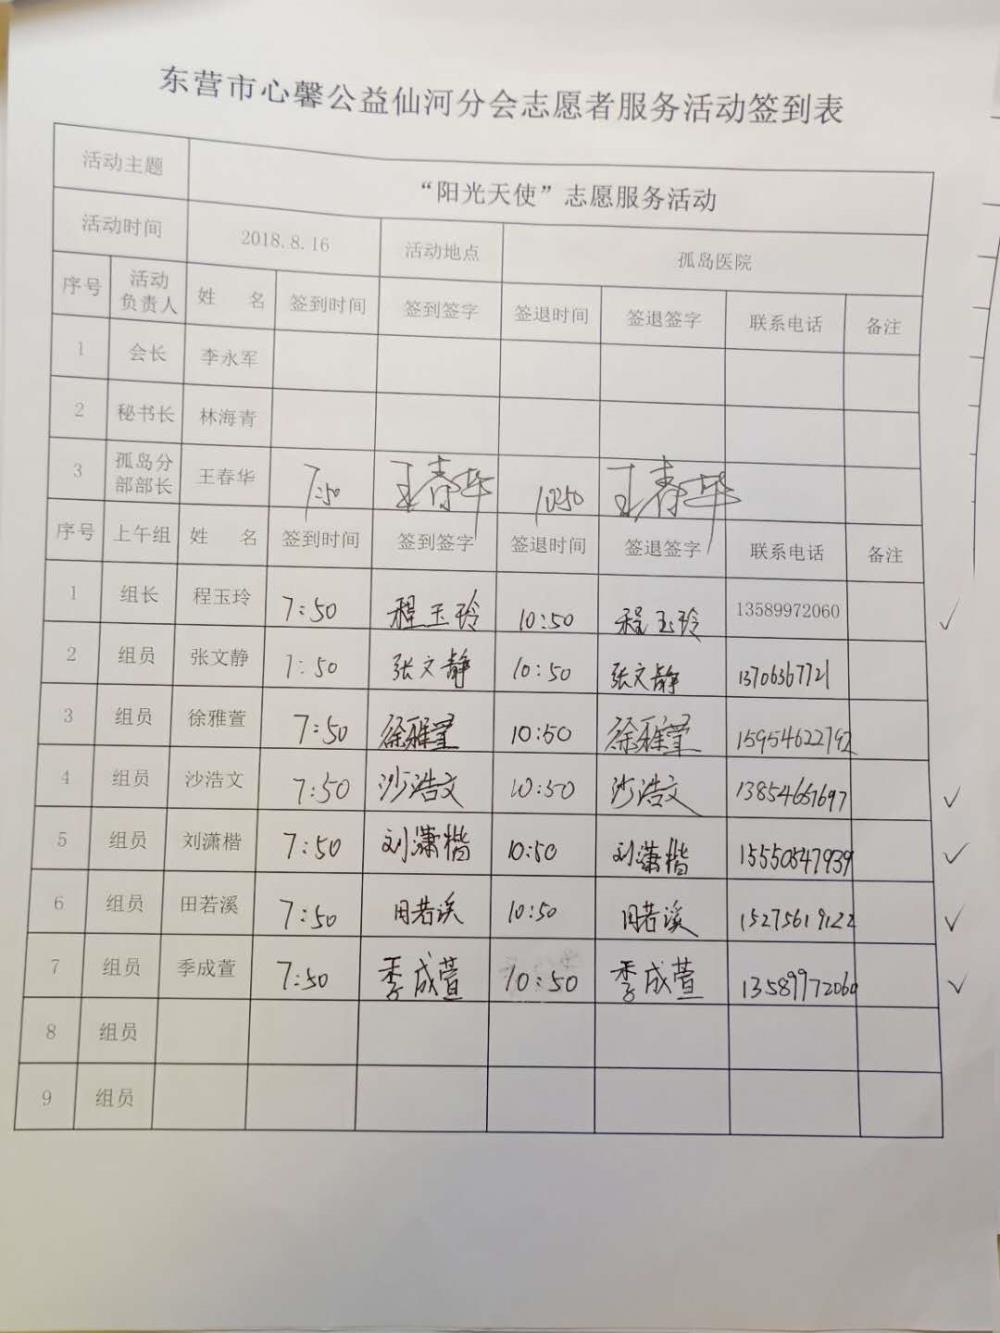 东营市心馨公益仙河分会志愿者服务活动签到表
活动主题 “阳光天使”志愿服务活动
活动时间 2018.8.16 活动地点 孤岛医院
序号 活动负责人 姓 名 签到时间 签到签字 签退时间 签退签字 联系电话 备注
1 会长 李永军
2 秘书长 林海青
3 孤岛分部部长 王春华 7:50 王春华 10:50 王春华
序号 上午组 姓 名 签到时间 签到签字 签退时间 签退签字 联系电话 备注
1 组长 程玉玲 7:50 程玉玲 10:50 程玉玲 13589972060
2 组员 张文静 7:50 张文静 10:50 张文静 13706367721
3 组员 徐雅萱 7:50 徐雅萱 10:50 徐雅萱 15954622792
4 组员 沙浩文 7:50 沙浩文 10:50 沙浩文
5 组员 刘潇楷 7:50 刘潇楷 10:50 刘潇楷 15550547939
6 组员 田若溪 7:50 田若溪 10:50 田若溪 15275619122
7 组员 季成萱 7:50 季成萱 10:50 季成萱 13589972060
8 组员
9 组员